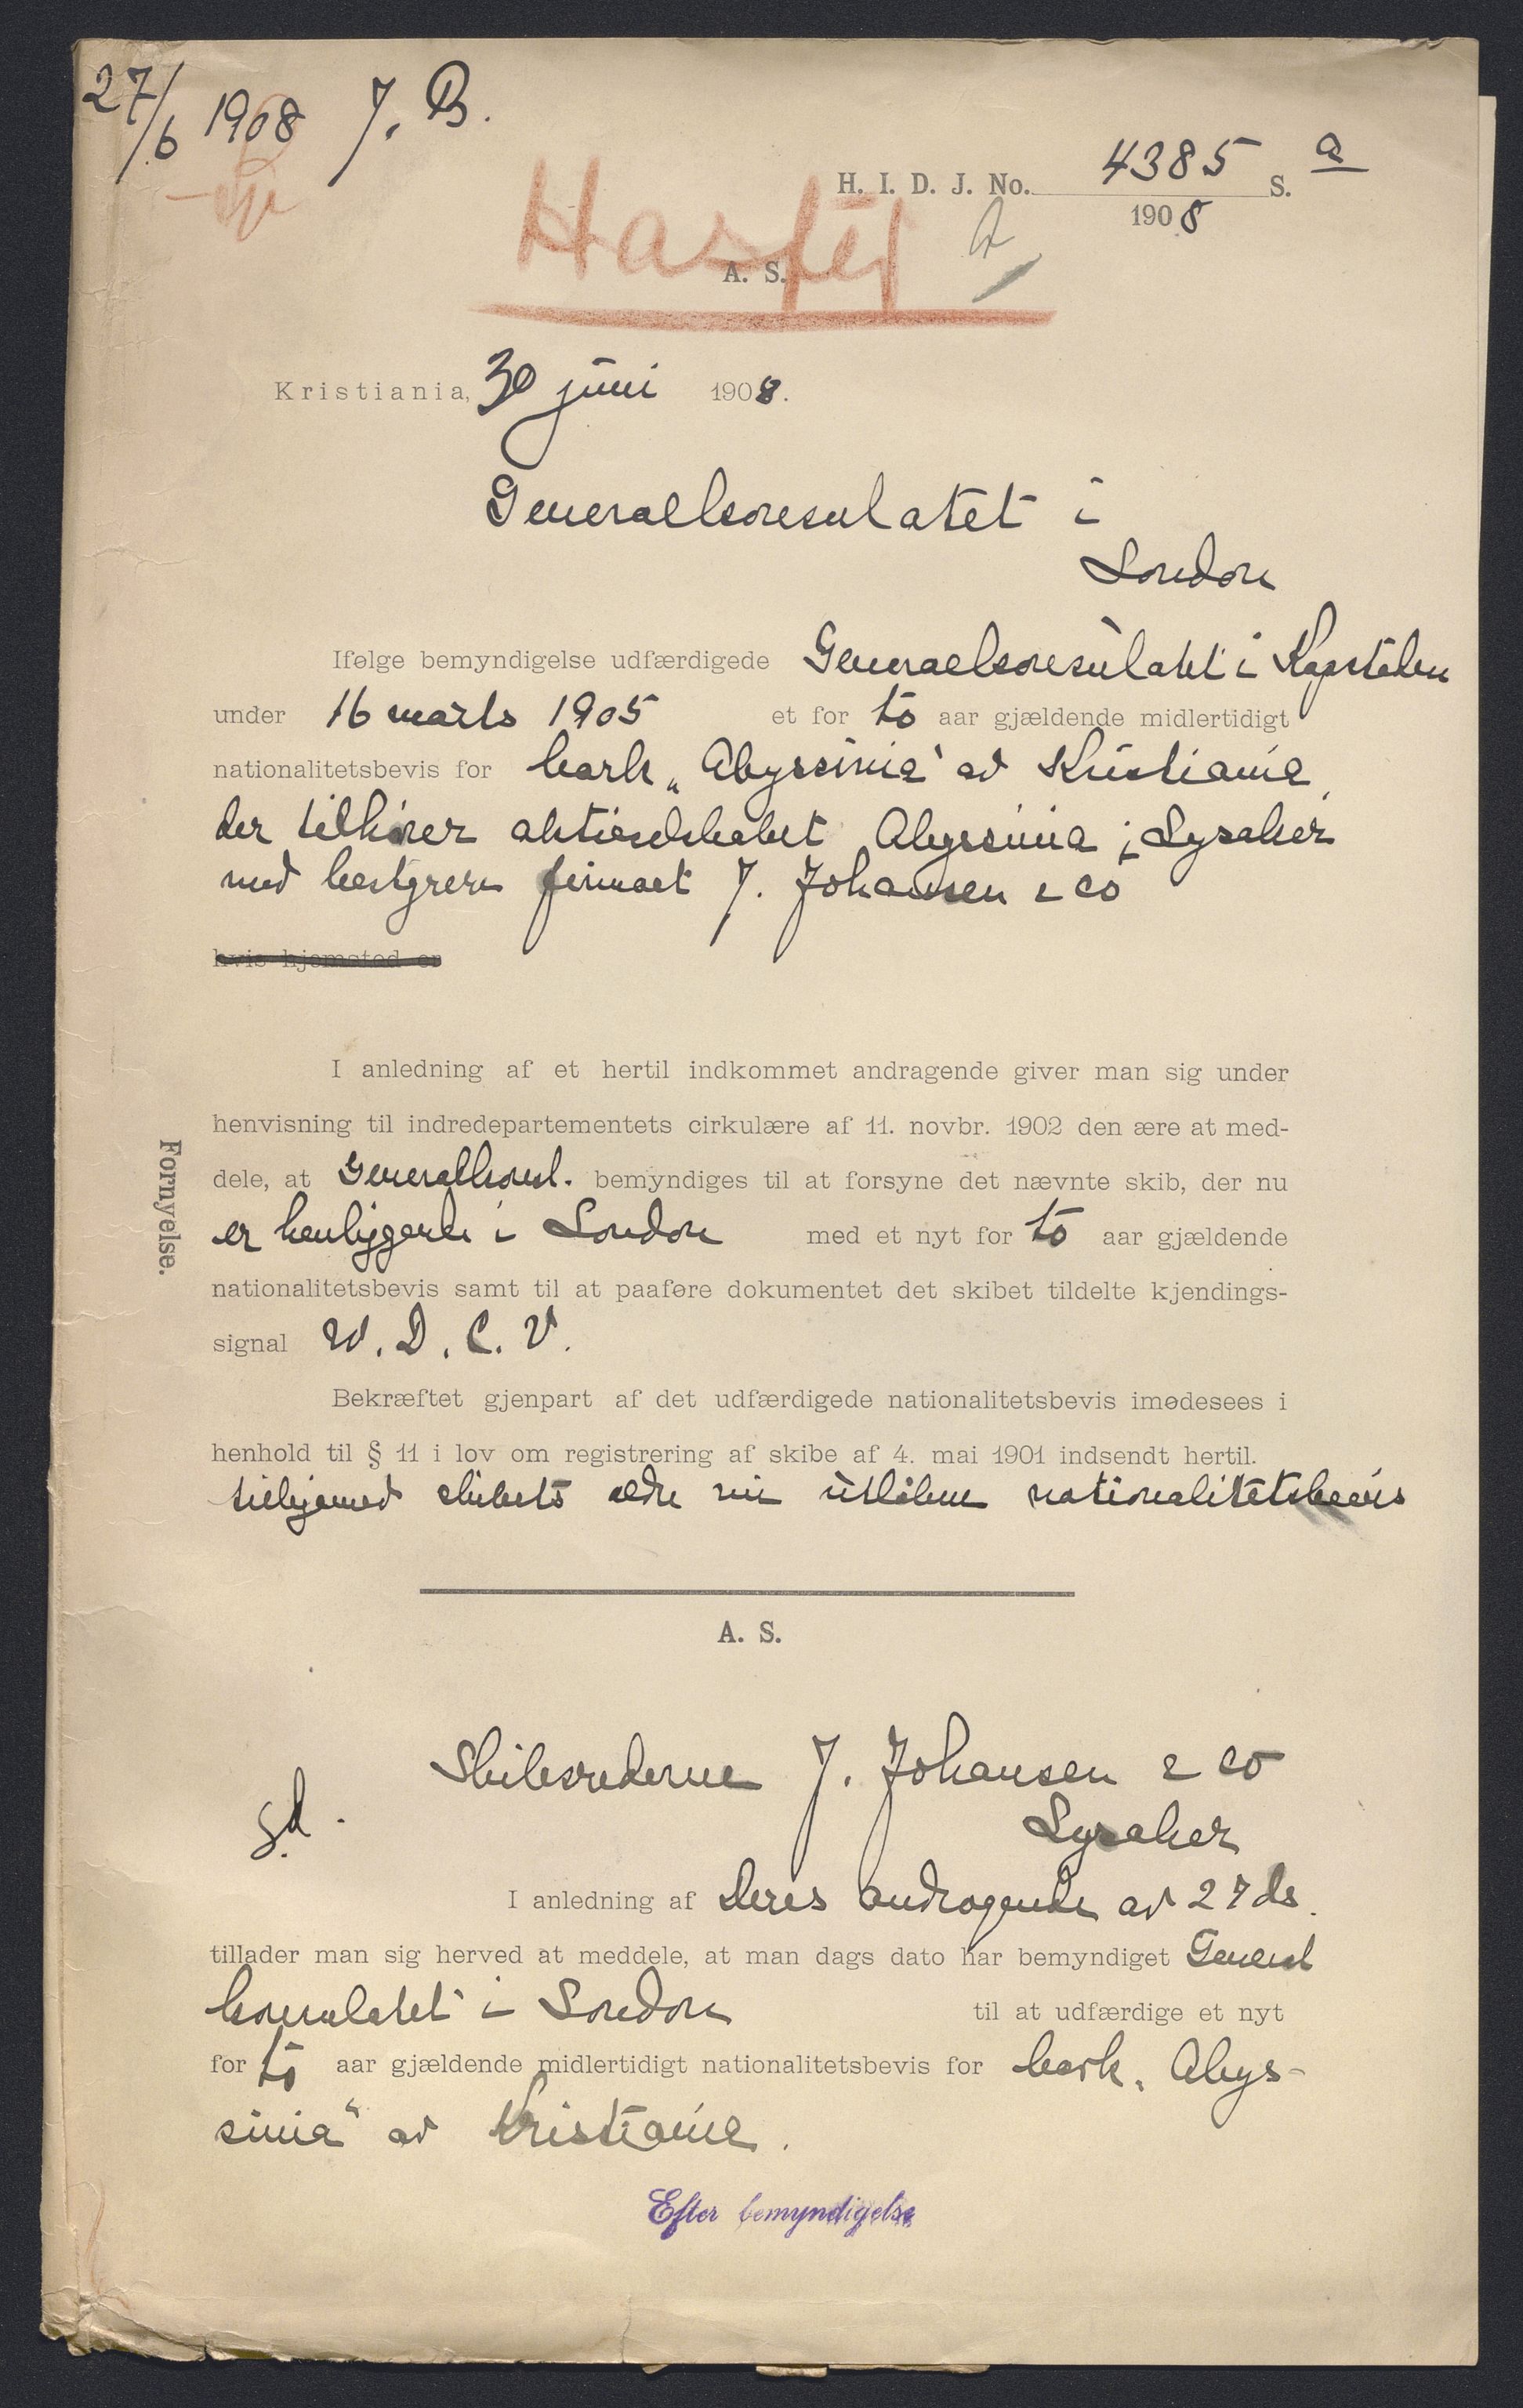 27/6 1908 J. B.
H. I. D. J. No. 4385 S. a
1908
Haster
A. S.
Kristiania, 30 juni 1908.
Generalkonsulatet i
London
Ifølge bemyndigelse udfærdigede Generalkonsulatet i Kapstaden
under 16 marts 1905 et for to aar gjældende midlertidigt
nationalitetsbevis for bark „Abyssinia" av Kristiania,
der tilhører aktieselskabet Abyssinia, Lysaker
med bestyrer firmaet J. Johansen & Co
hvis hjemsted er
I anledning af et hertil indkommet andragende giver man sig under
henvisning til indredepartementets cirkulære af 11. novbr. 1902 den ære at med-
dele, at Generalkonsul. bemyndiges til at forsyne det nævnte skib, der nu
er henliggende i London med et nyt for to aar gjældende
nationalitetsbevis samt til at paaføre dokumentet det skibet tildelte kjendings-
signal W. D. C. V.
Fornyelse.
Bekræftet gjenpart af det udfærdigede nationalitetsbevis imødesees i
henhold til § 11 i lov om registrering af skibe af 4. mai 1901 indsendt hertil.
tilligemed skibets ældre nu utløbne nationalitetsbevis
A. S.
Skibsrederne J. Johansen & Co
Lysaker
I anledning af Deres andragende av 27 ds.
tillader man sig herved at meddele, at man dags dato har bemyndiget General
konsulatet i London til at udfærdige et nyt
for to aar gjældende midlertidigt nationalitetsbevis for bark „Abys-
sinia" av Kristiania.
Efter bemyndigelse